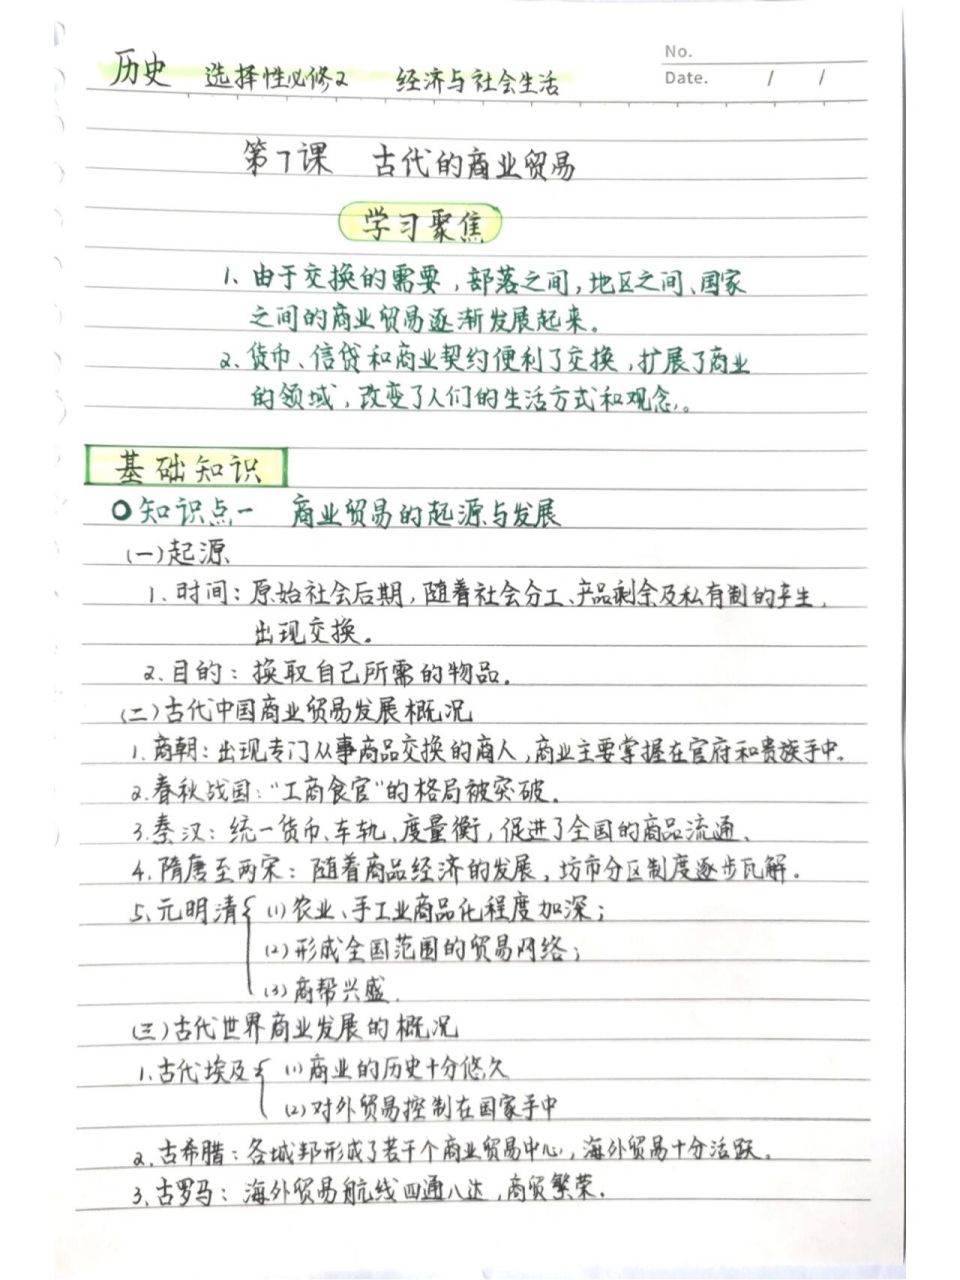 No.
历史 选择性必修2 经济与社会生活
Date. / /
第7课 古代的商业贸易
学习聚焦
1、由于交换的需要,部落之间,地区之间、国家
之间的商业贸易逐渐发展起来。
2、货币、信贷和商业契约便利了交换,扩展了商业
的领域,改变了人们的生活方式和观念。
基础知识
知识点一 商业贸易的起源与发展
(一)起源
1、时间:原始社会后期,随着社会分工、产品剩余及私有制的产生,
出现交换。
2、目的:换取自己所需的物品。
(二)古代中国商业贸易发展概况
1、商朝:出现专门从事商品交换的商人,商业主要掌握在官府和贵族手中。
2、春秋战国:“工商食官”的格局被突破。
3、秦汉:统一货币、车轨、度量衡,促进了全国的商品流通、
4、隋唐至两宋:随着商品经济的发展,坊市分区制度逐步瓦解.
5、元明清{ (1)农业、手工业商品化程度加深;
(2)形成全国范围的贸易网络;
(3)商帮兴盛.
(三)古代世界商业发展的概况
1、古代埃及{ (1)商业的历史十分悠久
(2)对外贸易控制在国家手中
2、古希腊:各城邦形成了若干个商业贸易中心,海外贸易十分活跃。
3、古罗马:海外贸易航线四通八达,商贸繁荣.